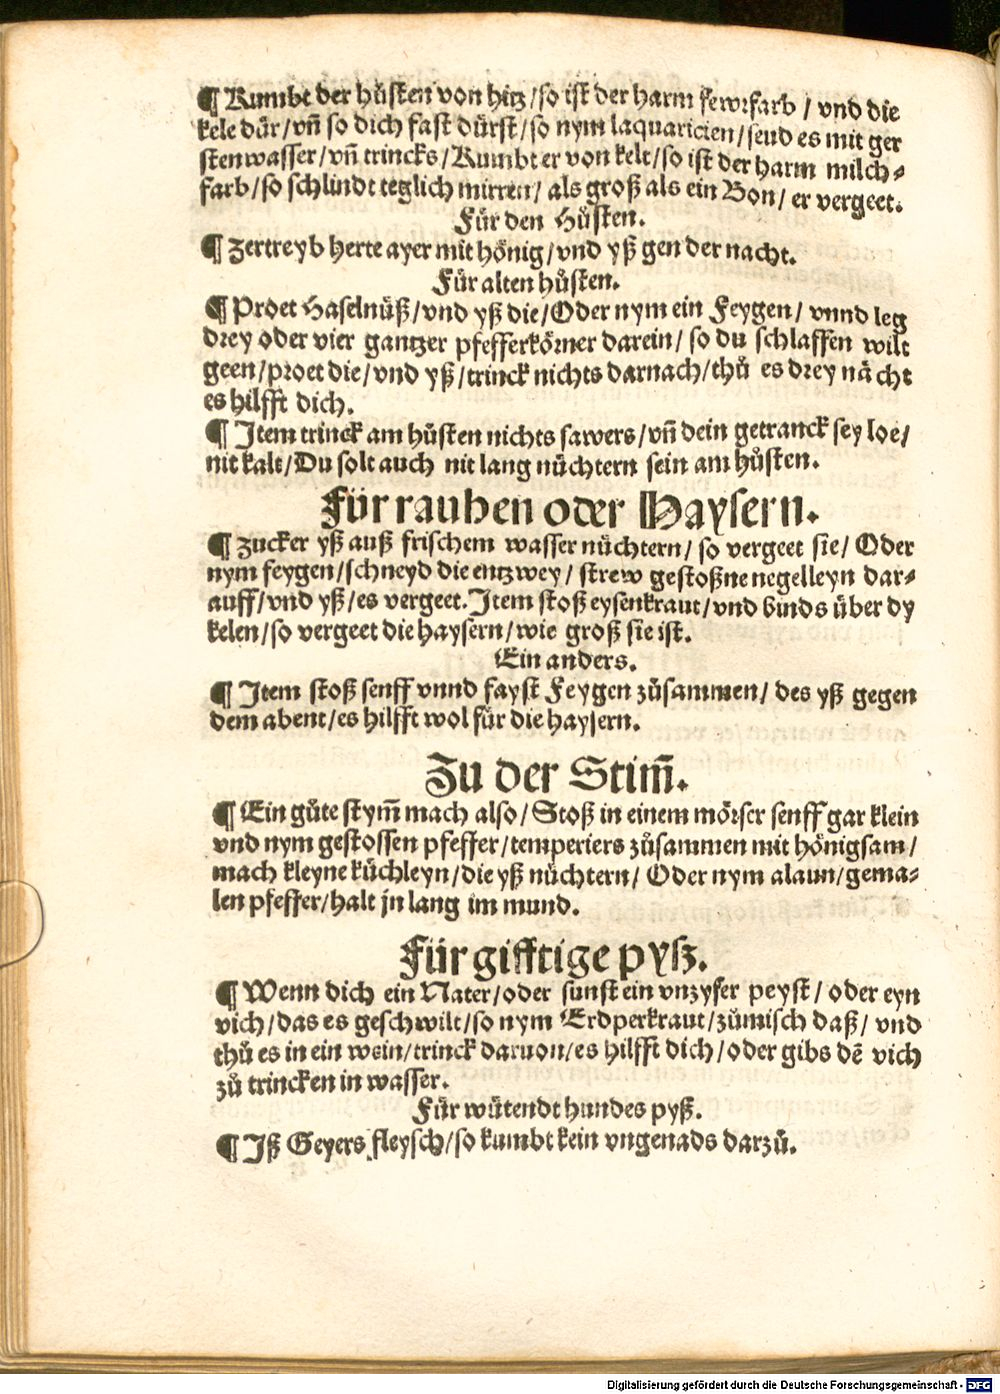 ¶ Kumbt der hůsten von hitz/so ist der harm fewrfarb / vnd die
kele dür/vñ so dich fast dürst/so nym laquaricien/seud es mit ger
stenwasser/vñ trincks/Kumbt er von kelt/so ist der harm milch⸗
farb/so schlindt teglich mirren/ als groß als ein Bon/ er vergeet.
Für den Hůsten.
¶ Zertreyb herte ayer mit hönig/vnd yß gen der nacht.
Für alten hůsten.
¶ Proet Haselnüß/vnd yß die/Oder nym ein Feygen/ vnnd leg
drey oder vier gantzer pfefferkörner darein/ so du schlaffen wilt
geen/proet die/vnd yß/trinck nichts darnach/thů es drey nächt
es hilfft dich.
¶ Item trinck am hůsten nichts sawers/vñ dein getranck sey loe/
nit kalt/Du solt auch nit lang nüchtern sein am hůsten.
Für rauhen oder Haysern.
¶ Zucker yß auß frischem wasser nüchtern/ so vergeet sie/ Oder
nym feygen/schneyd die entzwey/ strew gestoßne negelleyn dar⸗
auff/vnd yß/es vergeet. Item stoß eysenkraut/vnd binds über dy
kelen/so vergeet die haysern/wie groß sie ist.
Ein anders.
¶ Item stoß senff vnnd fayst Feygen zůsammen/ des yß gegen
dem abent/es hilfft wol für die haysern.
Zu der Stim̃.
¶ Ein gůte stym̃ mach also/Stoß in einem mörser senff gar klein
vnd nym gestossen pfeffer/temperiers zůsammen mit hönigsam/
mach kleyne küchleyn/die yß nüchtern/ Oder nym alaun/gema⸗
len pfeffer/halt jn lang im mund.
Für gifftige pyß.
¶ Wenn dich ein Nater/oder sunst ein vnzyfer peyst/ oder eyn
vich/das es geschwilt/so nym Erdperkraut/zůmisch daß/ vnd
thů es in ein wein/trinck daruon/es hilfft dich/oder gibs dē vich
zů trincken in wasser.
Für wütendt hundes pyß.
¶ Iß Geyers fleysch/so kumbt kein vngenads darzů.
Digitalisierung gefördert durch die Deutsche Forschungsgemeinschaft - DFG